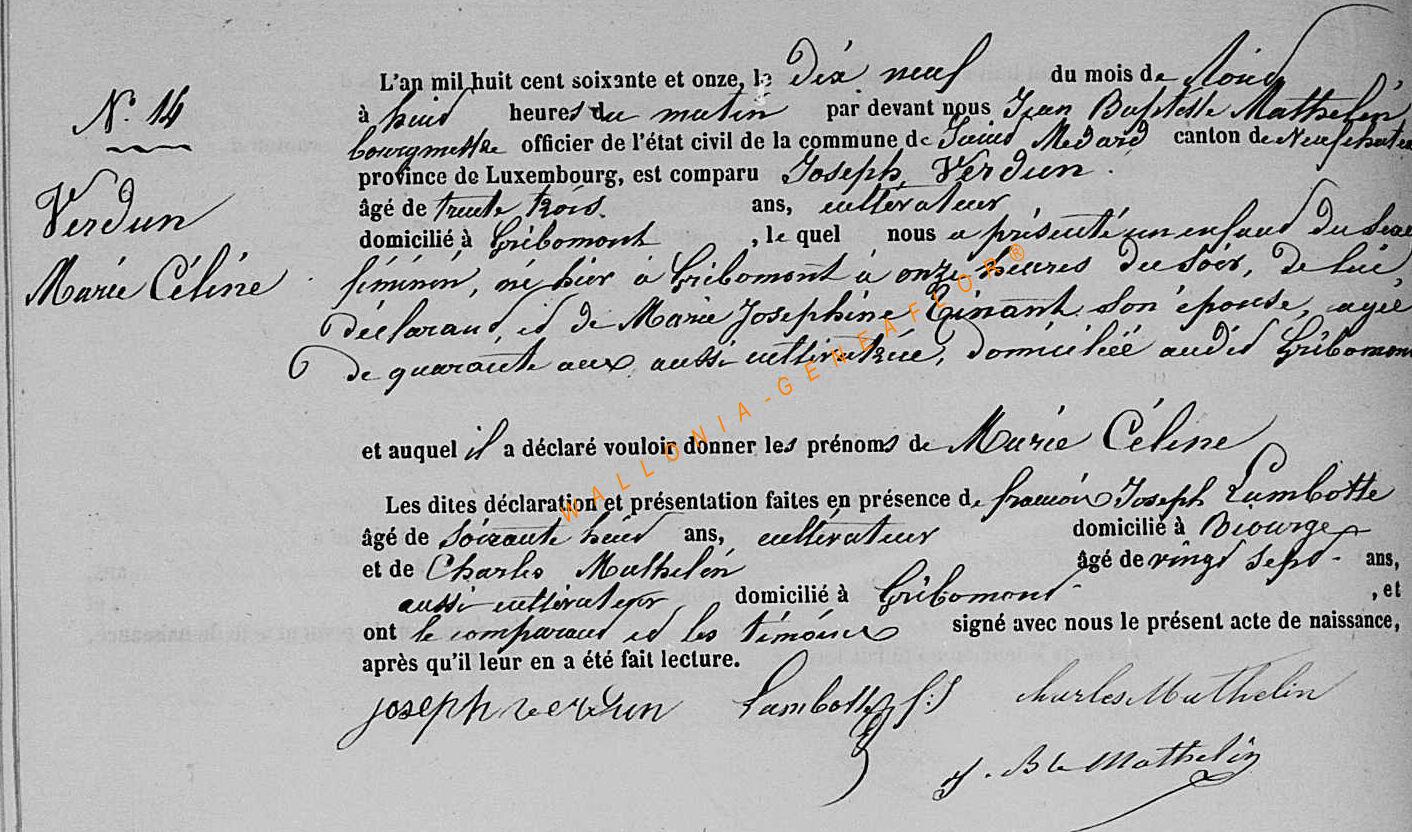 N.° 14
Verdun
Marie Céline
L'an mil huit cent soixante et onze, le dix neuf du mois de Aout
à huit heures du matin par devant nous Jean Baptiste Mathelin
bourgmestre officier de l'état civil de la commune de Saint Medard canton de Neufchateau
province de Luxembourg, est comparu Joseph Verdun.
âgé de trente trois. ans, cultivateur
domicilié à Gribomont, le quel nous a présenté un enfant du sexe
féminin, né hier à Gribomont à onze heures du soir, de lui
déclarant, et de Marie Josephine Tinant son épouse, agée
de quarante ans, aussi cultivatrice, domiciliée audit Gribomont
et auquel il a déclaré vouloir donner les prénoms de Marie Céline
Les dites déclaration et présentation faites en présence de françois Joseph Lambotte
âgé de soixante huit ans, cultivateur domicilié à Biourge
et de Charles Mathelin âgé de vingt sept ans,
aussi cultivateur, domicilié à Gribomont, et
ont le comparant et les témoins signé avec nous le présent acte de naissance,
après qu'il leur en a été fait lecture.
joseph verdun Lambotte f: j charles Mathelin
J. Bte Mathelin
WALLONIA-GENEAFLOR®